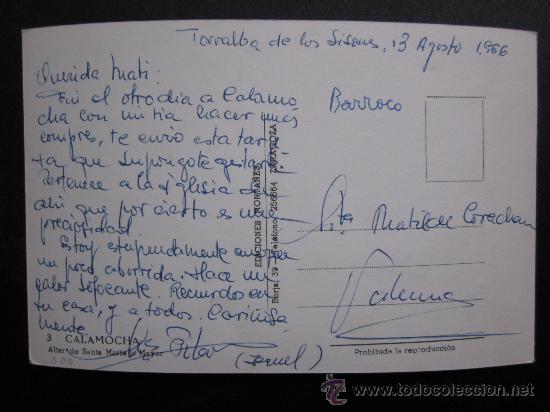 Torralba de los Sisones, 13 Agosto 1.966
Querida Mati:
Fui el otro dia a Calamo
cha con mi tia hacer unas
compras, te envio esta tar
ta que supongo te gustará.
Pertenece a la Iglesia de
ahi que por cierto es una
preciosidad.
Estoy estupendamente aunque
un poco aburrida. Hace un
calor sofocante. Recuerdos en
tu casa, y a todos. Cariñosa
mente.
Pilar
(Teruel)
3 CALAMOCHA
Altar de Santa María la Mayor
EDICIONES MONTAÑES
Borja, 39 - Teléfono, 256664 ZARAGOZA
Barroco
Srta Matilde Corachan
Valencia
Prohibida la reproducción
todocoleccion.net